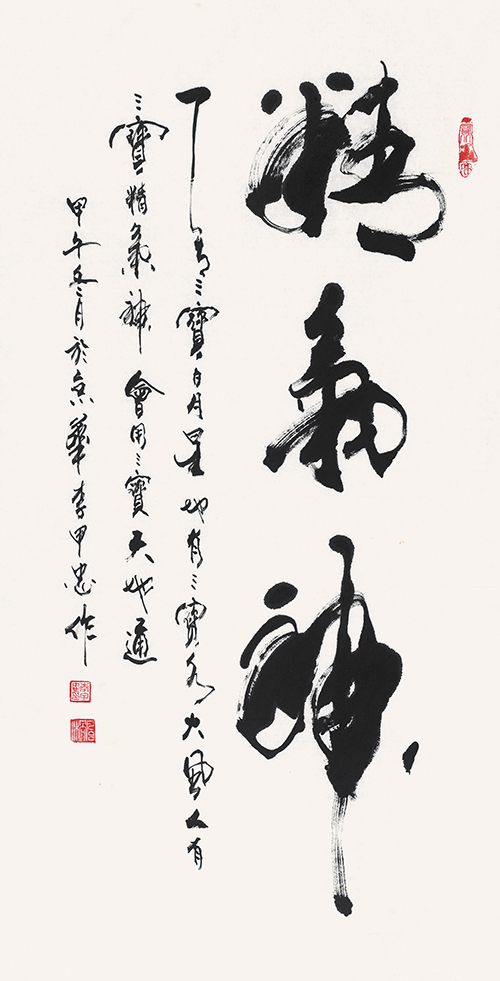 精氣神
天有三寶日月星地有三寶水火風人有
三寶精氣神會用三寶天地通
甲午冬月於京華李甲忠作